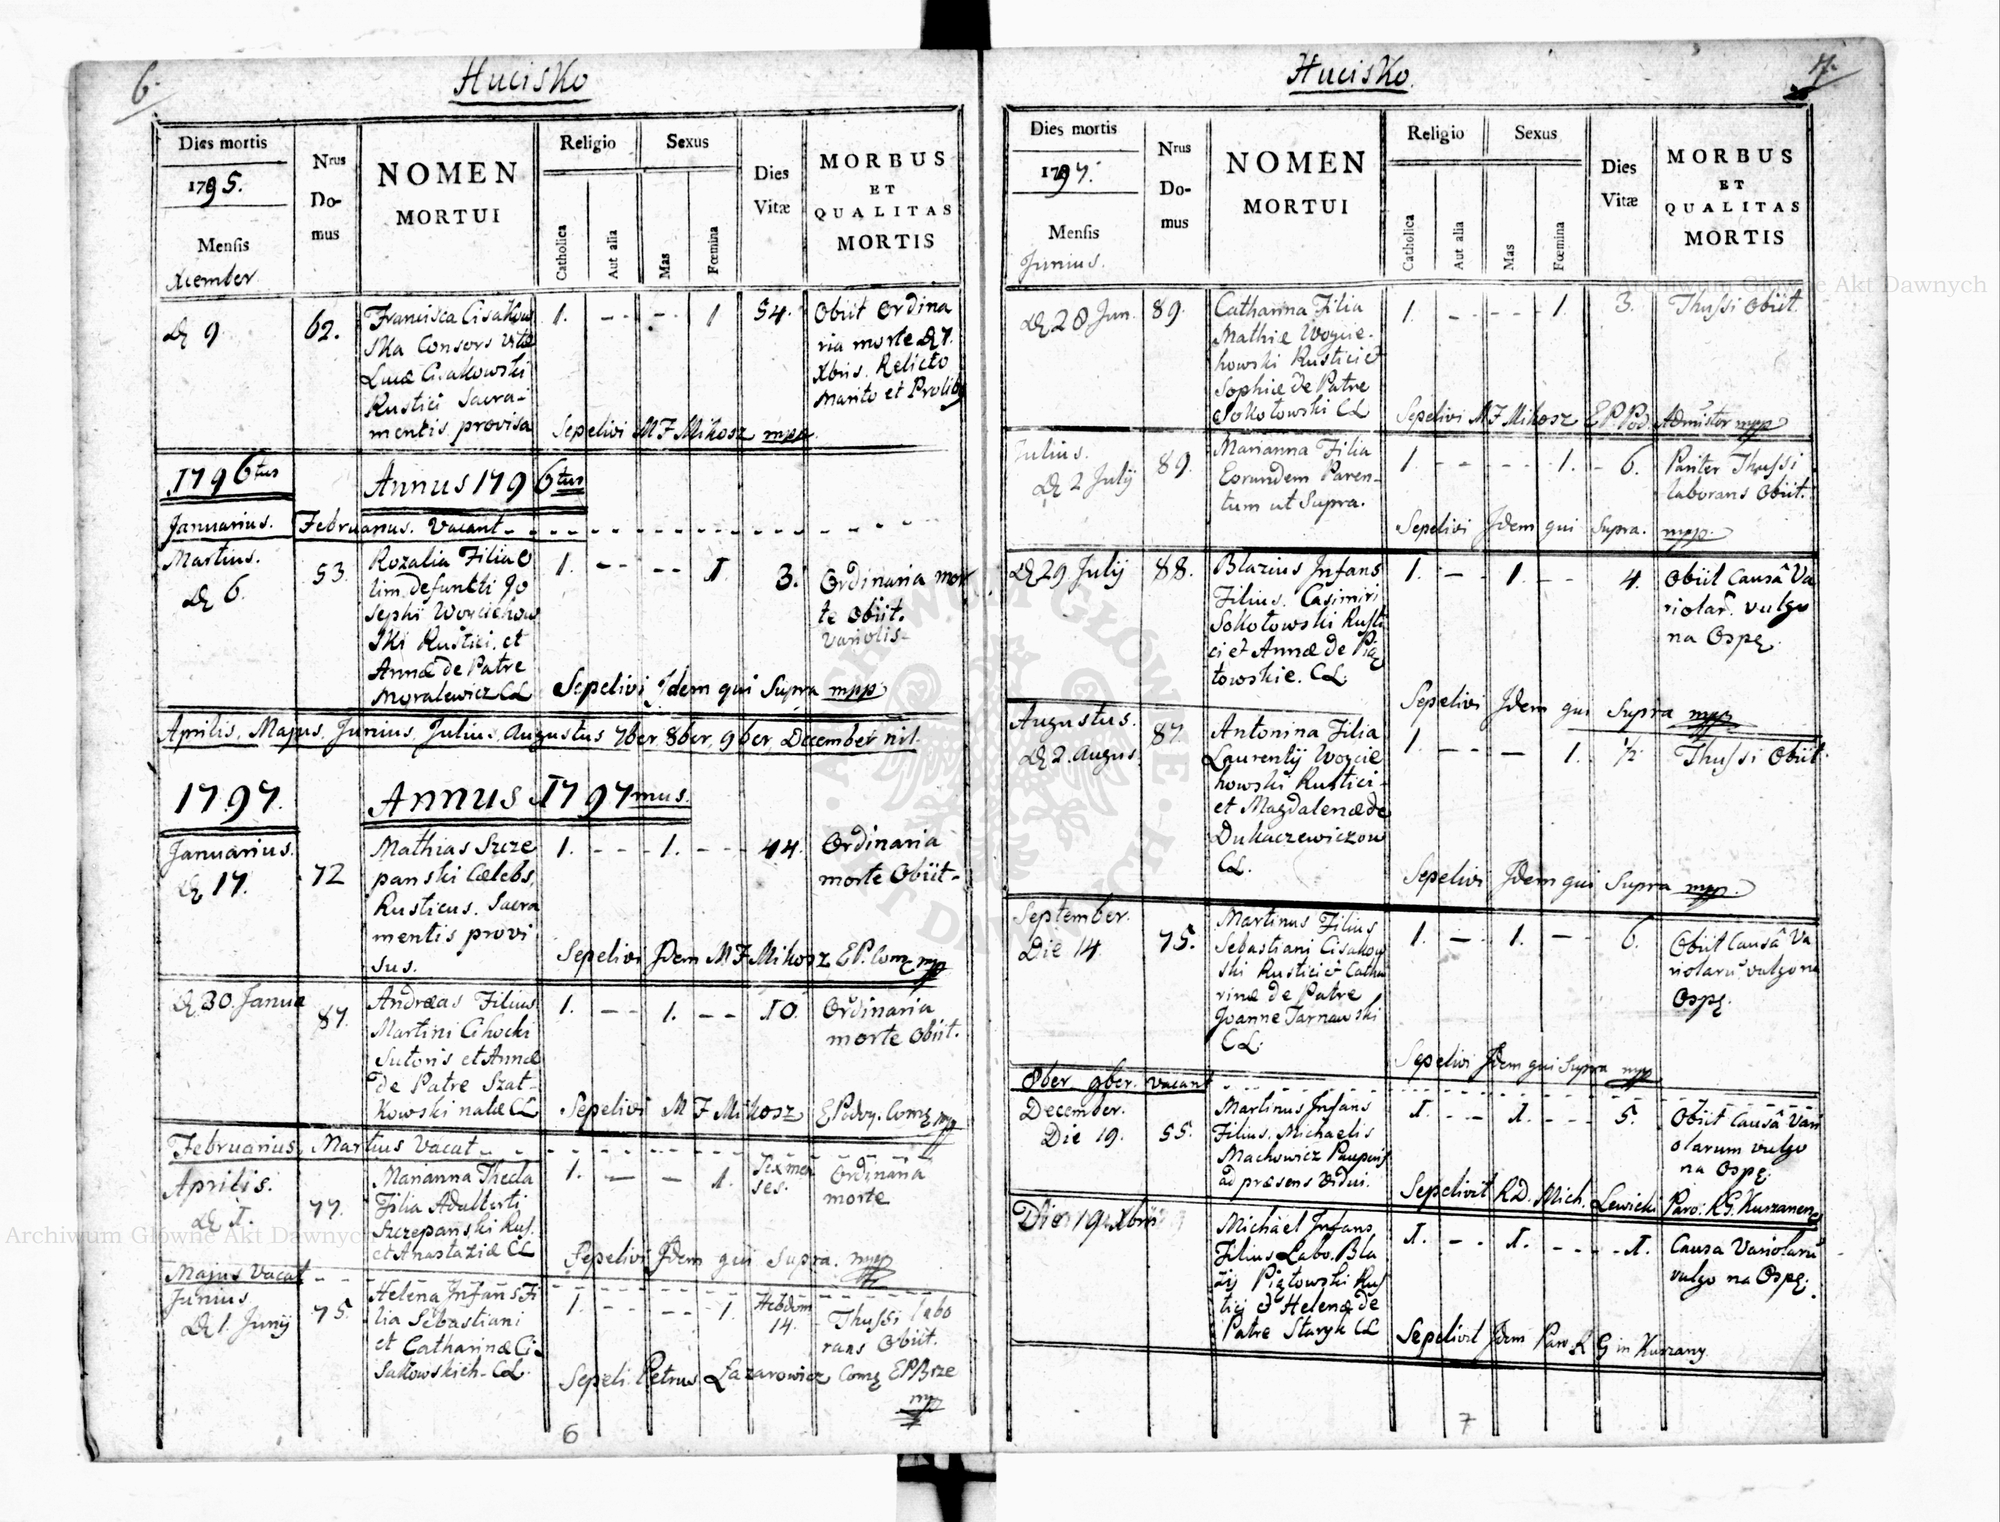 6.
Hucisko
Dies mortis
1795.
Mensis
Xcember
Nrus
Do-
mus
NOMEN
MORTUI
Religio
Catholica
Aut alia
Sexus
Mas
Fœmina
Dies
Vitæ
MORBUS
ET
QUALITAS
MORTIS
Die 9
62.
Francisca Cisakow
ska Consors
Lucæ Cisakowski
Rustici Sacra-
mentis provisa
1. - - - - 1
54.
Obiit Ordina
ria morte Die 7.
Xbris. Relicto
Marito et Prolibus
Sepelivi M F Mikosz mpp.
1796tus
Annus 1796tus
Januarius. Februarius. Vacant - - -
Martius.
Die 6.
53.
Rozalia Filia O
lim defuncti Jo
sephi Woyciehow
ski Rustici. et
Annæ de Patre
Moralewicz CL
1. - - - - 1.
3.
Ordinaria mor
te Obiit.
Variolis-
Sepelivi Idem qui Supra mpp
Aprilis, Majus, Junius, Julius, Augustus 7ber, 8ber, 9ber, December nil.
1797.
Annus 1797mus.
Januarius.
Die 17.
72
Mathias Szcze
panski Cælebs,
Rusticus. Sacra
mentis provi
sus.
1. - - 1. - -
44.
Ordinaria
morte Obiit-
Sepelivi Idem M F Mikosz EP. Come mpp
Die 30. Janua
87.
Andræas Filius
Martini Cihocki
Sutoris et Annæ
de Patre Szat-
kowski natæ CL
1. - - 1. - -
10.
Ordinaria
morte Obiit.
Sepelivi M F Mikosz EPody. Come mpp
Februarius, Martius Vacat - - -
Aprilis.
Die 1.
77.
Marianna Thecla
Filia Adalberti
Szczepanski Rus.
et Anastaziæ CL
1. - - 1.
Sex men
ses.
Ordinaria
morte
Sepelivi Idem qui Supra. mpp
Majus Vacat - -
Junius
Die 1. Junij
75.
Helena Infans Fi
lia Sebastiani
et Catharinæ Ci-
sakowskich- CL.
1. - - - - 1.
Hebdom
14.
Thussi labo
rans Obiit.
Sepeli. Petrus Lazarowicz Come EPBrze
mpp
6
7.
Hucisko.
Dies mortis
1797.
Mensis
Junius.
Nrus
Do-
mus
NOMEN
MORTUI
Religio
Catholica
Aut alia
Sexus
Mas
Fœmina
Dies
Vitæ
MORBUS
ET
QUALITAS
MORTIS
Die 28 Jun.
89.
Catharina Filia
Mathiæ Woycie-
howski Rustici et
Sophiæ de Patre
Sokołowski CL
1. - - - - 1.
3.
Thussi Obiit.
Sepelivi M F Mikosz EP. Pod. Admistor mpp
Julius.
Die 2 July
89.
Marianna Filia
Eorundem Paren-
tum ut Supra.
1. - - - - 1.
- 6.
Pariter Thussi
laborans Obiit.
Sepelivi Idem qui Supra. mpp.
Die 29 July
88.
Blazius Infans
Filius. Casimiri
Sokołowski Rusti
ci et Annæ de Pią
towskie. CL.
1. - - 1. - -
4.
Obiit Causâ Va
riolar. vulgo
na Ospę.
Sepelivi Idem qui Supra mpp
Augustus.
Die 2. Augus.
87.
Antonina Filia
Laurentij Woycie
howski Rustici-
et Magdalenæ de
Dukaczewiczow
CL.
1. - - - 1.
1/2
Thussi Obiit.
Sepelivi Idem qui Supra mpp.
September.
Die 14
75.
Martinus Filius
Sebastiani Cisakow
ski Rustici et Catha
rinæ de Patre
Joanne Tarnawski
CL.
1. - - 1. - -
6.
Obiit Causâ Va
riolarū vulgo na
Ospę.
Sepelivi Idem qui Supra mpp
8ber 9ber. vacant - - -
December.
Die 19.
55.
Martinus Infans
Filius. Michaelis
Machowicz Pauperis
ad præsens Vidui.
1. - - 1. - -
5.
Obiit Causâ Vari
olarum vulgo
na Ospę.
Sepelivit R.D. Mich. Lewicki Paro: R.G. Kurzanens
Die 19 Xbris
Michael Infans
Filius Labo. Bla
zij Piątowski Rus
tici et Helenæ de
Patre Staryk CL
1. - - 1. - - -
1.
Causa Variolarū
vulgo na Ospę.
Sepelivit Idem Paro R G in Kurzany.
7
Archiwum Główne Akt Dawnych
Archiwum Główne Akt Dawnych